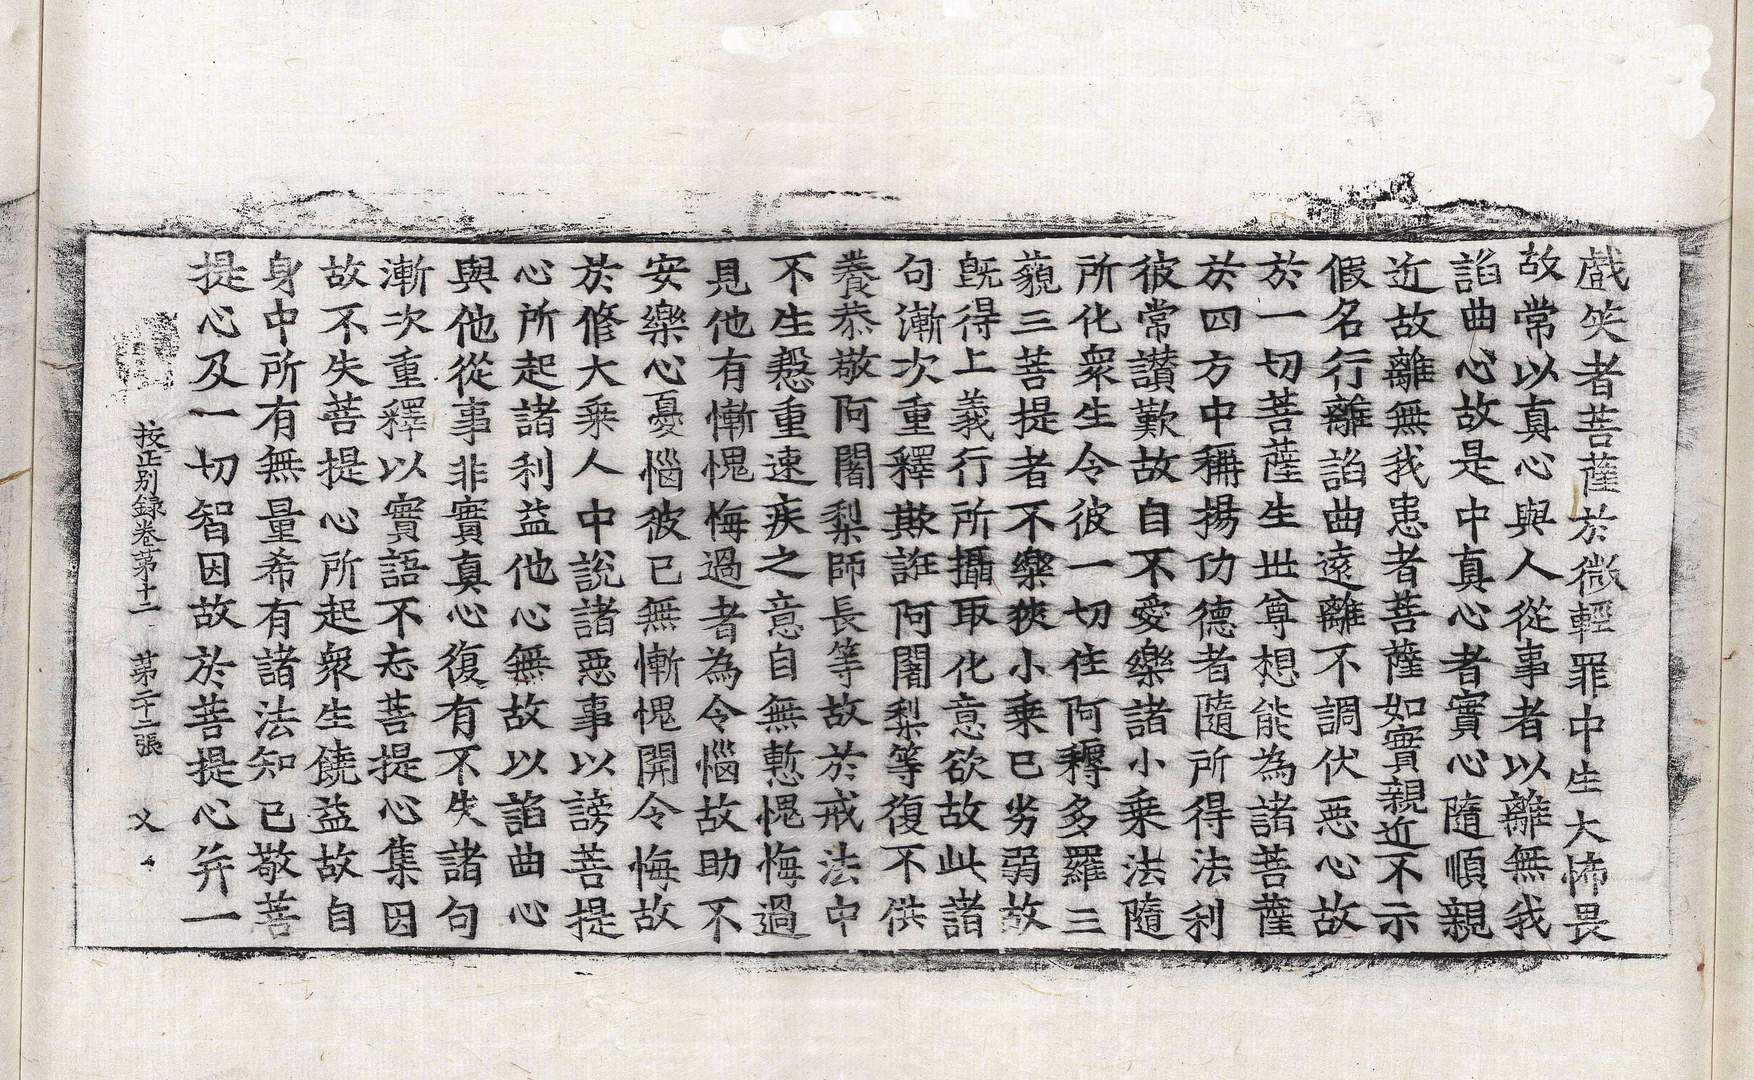 戲笑者菩薩於微輕罪中生大怖畏
故常以真心與人從事者以離無我
諂曲心故是中真心者實心隨順親
近故離無我恚者菩薩如實親近不示
假名行離諂曲遠離不調伏惡心故
於一切菩薩生世尊想能為諸菩薩
於四方中稱揚功德者隨所得法利
彼常讃歎故自不愛樂諸小乘法隨
所化衆生令彼一切住阿耨多羅三
藐三菩提者不樂狹小乘已劣弱故
旣得上義行所攝取化意欲故此諸
句漸次重釋欺誑阿闍梨等復不供
養恭敬阿闍梨師長等故於戒法中
不生慇重速疾之意自無慙愧悔過
見他有慚愧悔過者為令惱故助不
安樂心憂惱彼已無慚愧開令悔故
於修大乘人中說諸惡事以謗菩提
心所起諸利益他心無故以諂曲心
與他從事非實真心復有不失諸句
漸次重釋以實語不忘菩提心集因
故不失菩提心所起衆生饒益故自
身中所有無量希有諸法知已敬菩
提心及一切智因故於菩提心并一
挍正別録卷第十二 第二十二張 乂